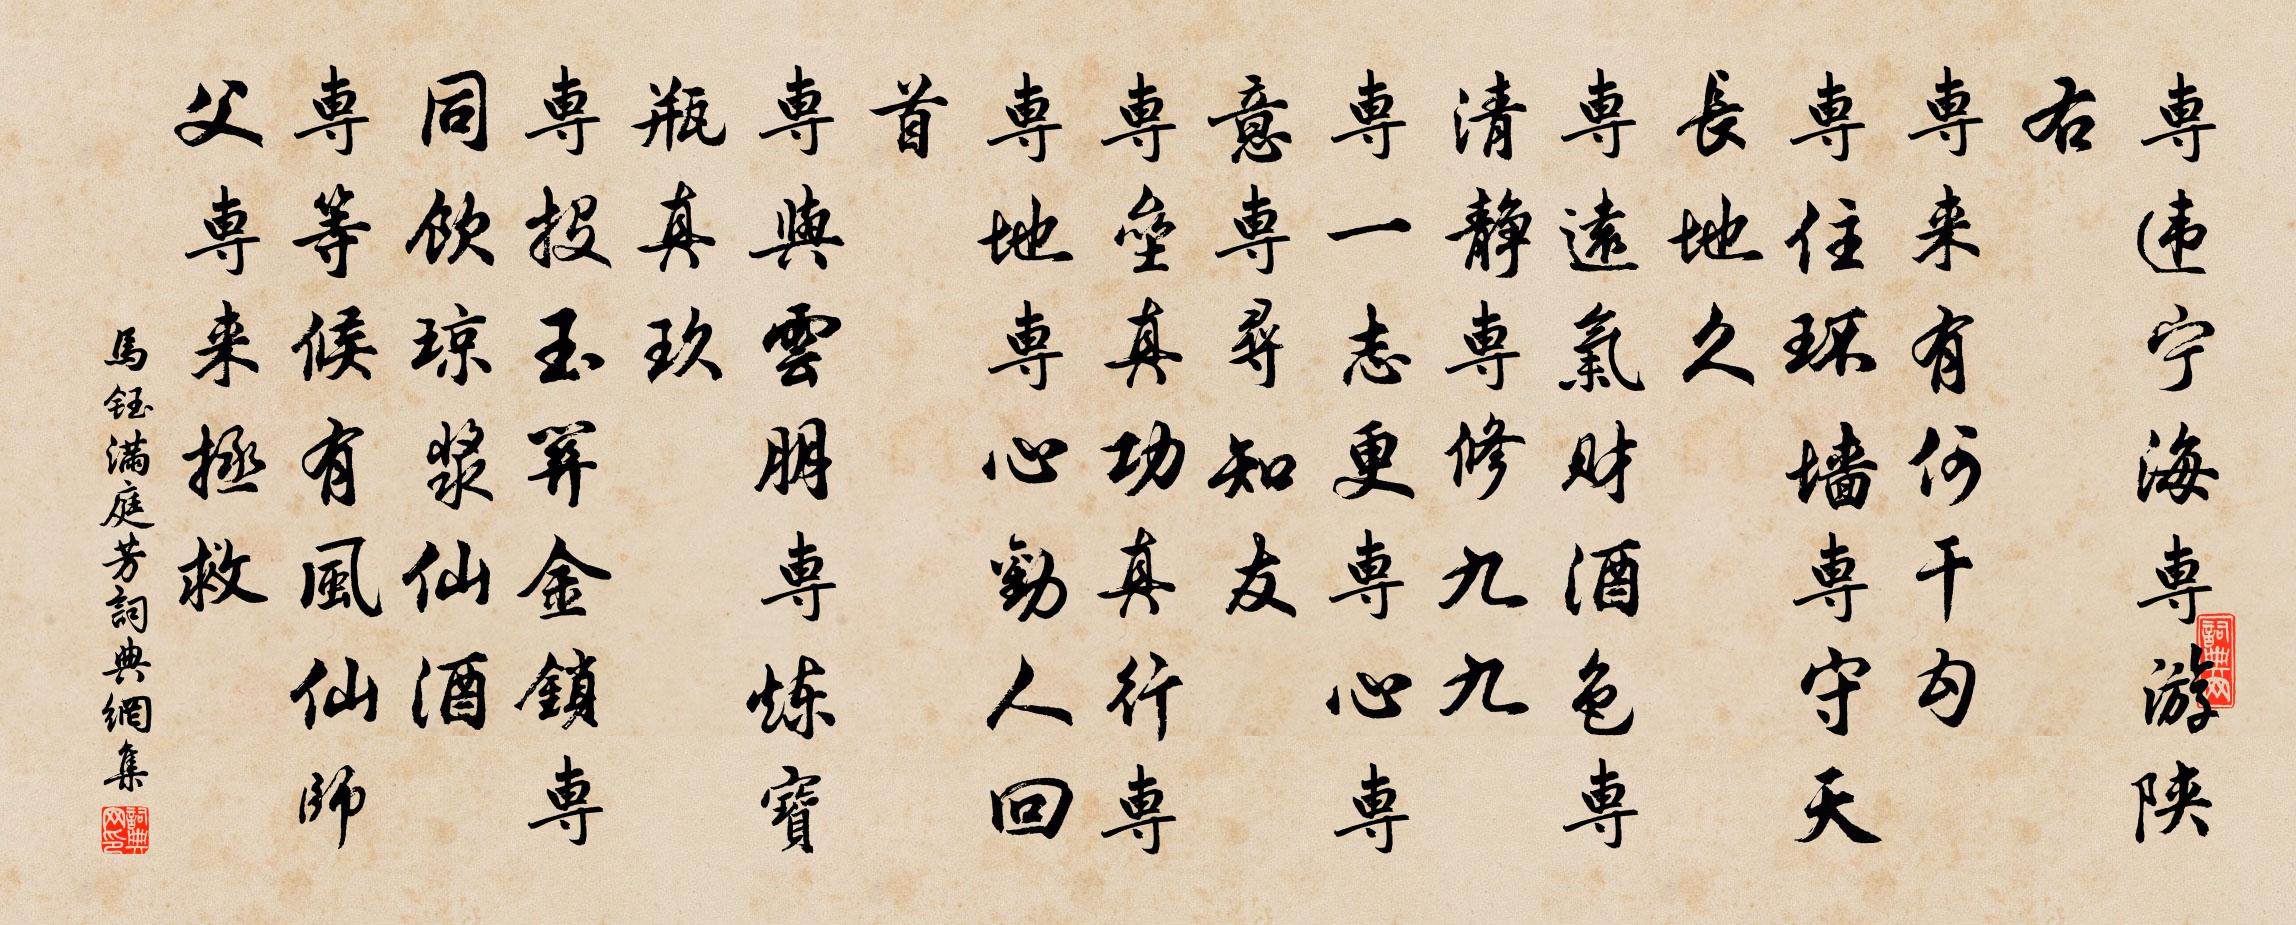 専违宁海専游陕
右
専来有何干勾
専住环墙専守天
長地久
専遠氣财酒色専
清静専修九九
専一志更専心専
意専尋知友
専垒真功真行専
専地専心勸人回
首
専與雲朋専炼寶
瓶真玖
専投玉開金鎖専
同飲琼漿仙酒
専等候有風仙師
父専来拯救
馬鈺满庭芳詞典網集
詞典网
詞典网印